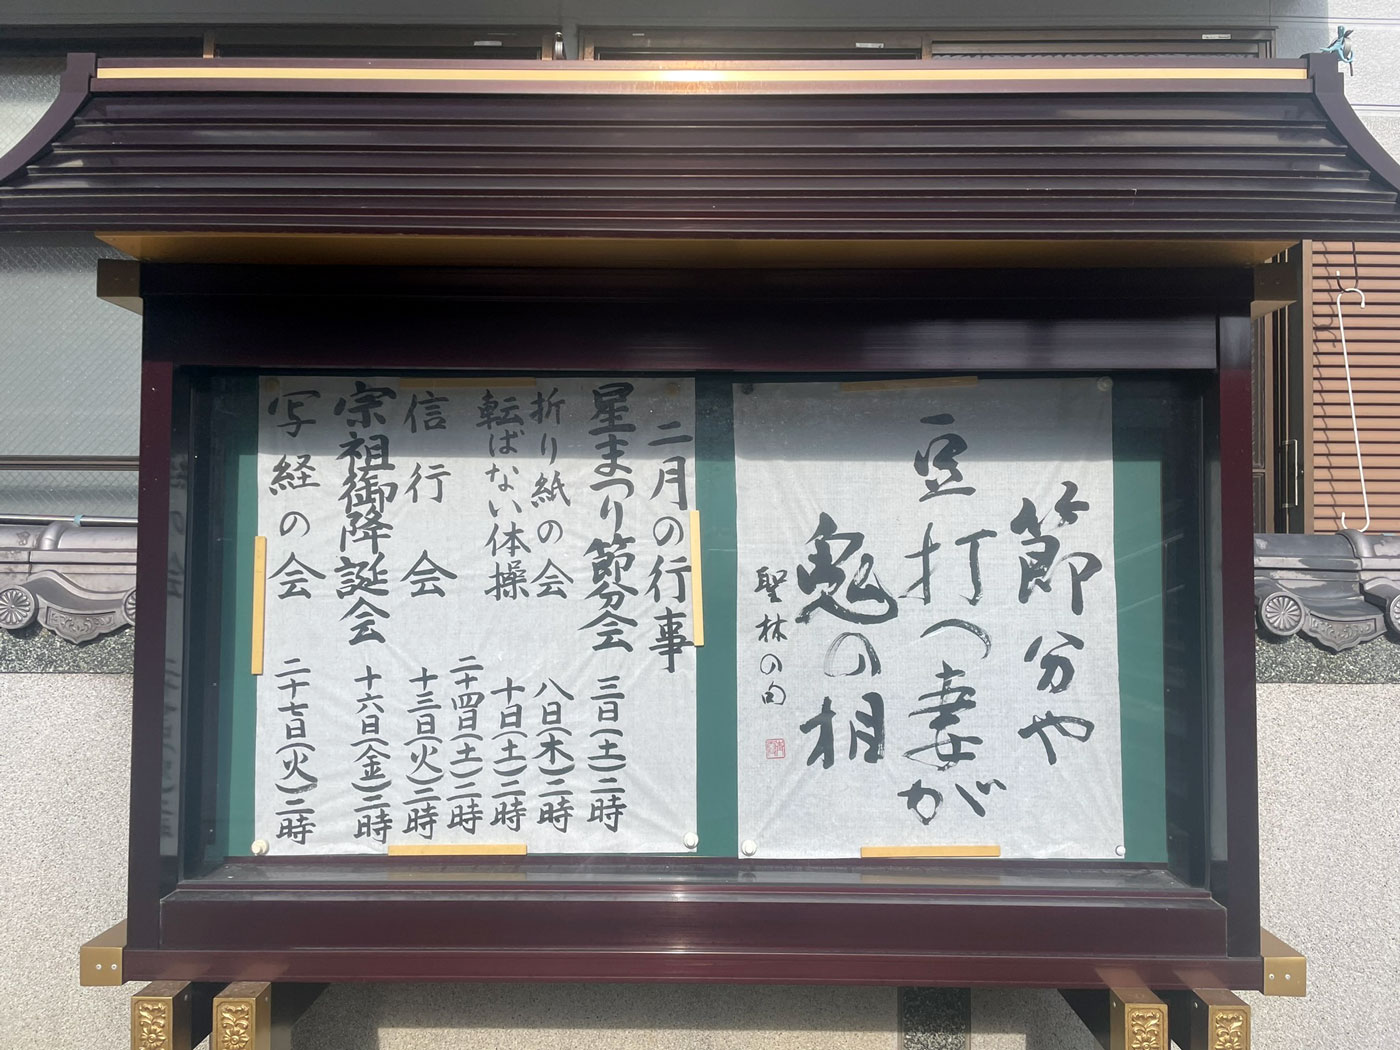 節分や
豆打つ妻が
鬼の相
聖林の句
二月の行事
星まつり節分会 三日(土)二時
折り紙の会 八日(木)二時
転ばない体操 十日(土)二時
二十四日(土)二時
信行会 十三日(火)二時
宗祖御降誕会 十六日(金)二時
写経の会 二十七日(火)二時